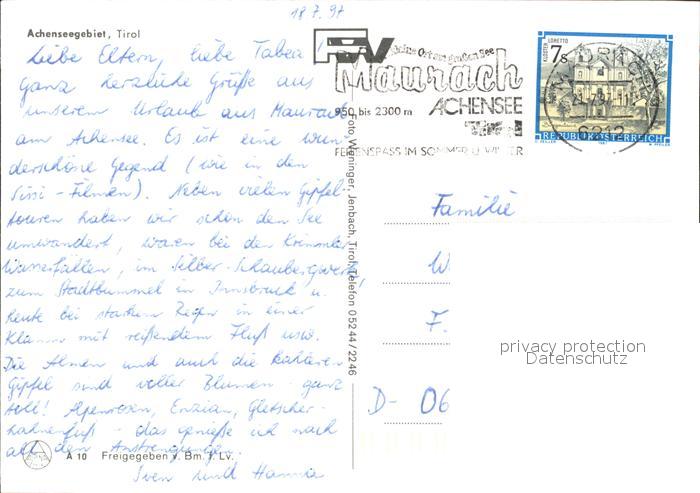 18.7.97
Achenseegebiet, Tirol
Liebe Eltern, liebe Tabea!
Ganz herzliche Grüße aus
unserem Urlaub aus Maurach
am Achensee. Es ist eine wun-
derschöne Gegend (wie in den
Sissi-Filmen). Neben vielen Gipfel-
touren haben wir schon den See
umwandert, waren bei den Krimmler
Wasserfällen, im Silber-Schaubergwerk,
zum Stadtbummel in Innsbruck u.
heute bei starkem Regen in einer
Klamm mit reißendem Fluß usw.
Die Almen und auch die
Gipfel sind voller Blumen - ganz
toll! Alpenrosen, Enzian, Gletscher-
hahnenfuß - das genieße ich nach
all den Anstrengungen.
Sven und Hanna
A 10 Freigegeben v. Bm. f. Lv.
Foto Weninger, Jenbach, Tirol, Telefon 05244/2246
kleine Ort am großen See
Maurach
950 bis 2300 m ACHENSEE
Tirol
FERIENSPASS IM SOMMER U. WINTER
KLOSTER LORETTO
7s
REPUBLIK ÖSTERREICH
Familie
W
F.
D- 06
privacy protection
Datenschutz